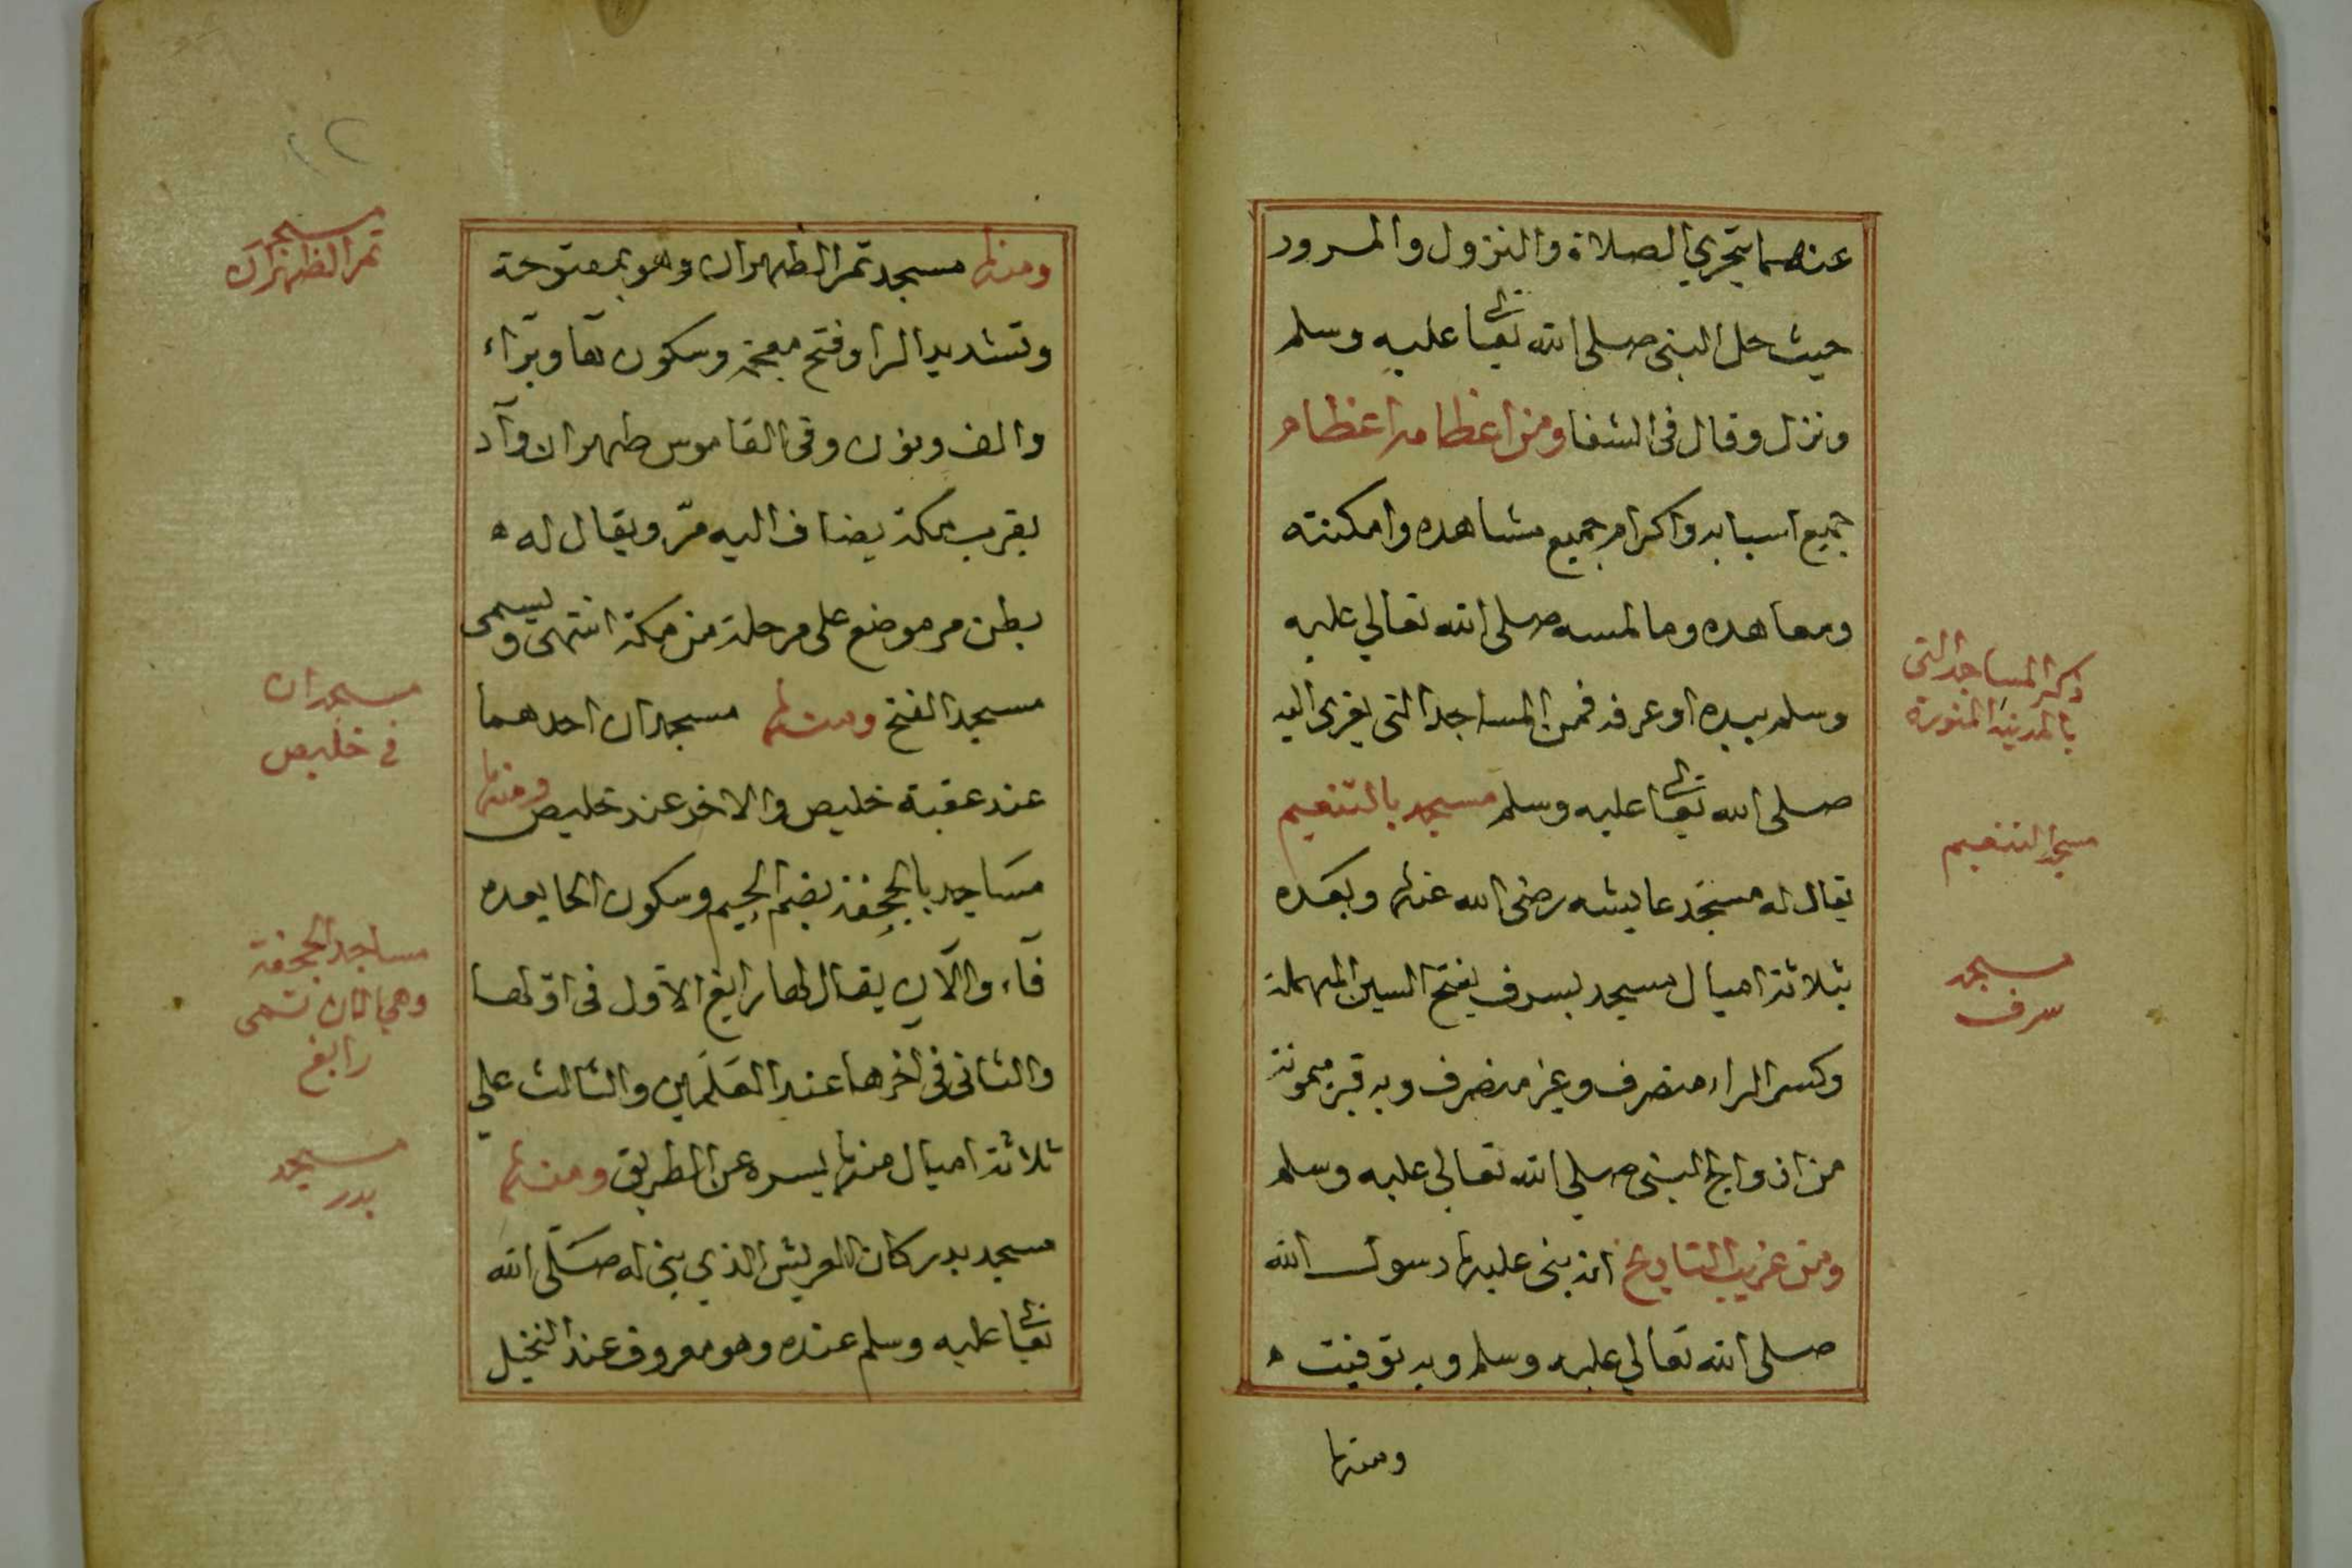 عنهما يتحرى الصلاة والنزول والمرور
حيث حل النبي صلى الله تعالى عليه وسلم
ونزل وقال في الشفا ومن اعظامه اعظام
جميع اسبابه واكرام جميع مشاهده وامكنته
ومعاهده وما لمسه صلى الله تعالي عليه
وسلم بيده او عرف فمن المساجد التي يعزى اليه
صلى الله تعالى عليه وسلم مسجد بالتنعيم
يقال له مسجد عايشه رضى الله عنها وبعده
بثلاثة اميال مسجد بسرف بفتح السين المهملة
وكسر الراء منصرف وغير منصرف وبه قبر ميمونة
من ازواج النبي صلي الله تعالى عليه وسلم
ومن غريب التاريخ انه بنى عليها رسول الله
صلى الله تعالي عليه وسلم وبه توفيت ه
ومنها
ذكر المساجد التي
بالمدينة المنورة
مسجد التنعيم
مسجد
سرف
٢٢
ومنها مسجد بمر الظهران وهو بمفتوحة
وتشديد الرا وفتح معجمة وسكون ها وبراء
والف ونون وفي القاموس ظهران واد
بقرب مكة يضاف اليه مرّ ويقال له ه
بطن مر موضع على مرحلة من مكة انتهى ويسمى
مسجد الفتح ومنها مسجدان احدهما
عند عقبة خليص والاخر عند خليص ومنها
مساجد بالجحفة بضم الجيم وسكون الحا بعده
فآء والآن يقال لها رابغ الاول في اولها
والثاني في اخرها عند العلمين والثالث علي
ثلاثة اميال منها يسره عن الطريق ومنها
مسجد بدر كان العريش الذي بني له صلّى الله
تعالى عليه وسلم عنده وهو معروف عند النخيل
مسجد
بمر الظهران
مسجدان
في خليص
مساجد الجحفة
وهي الان تسمى
رابغ
مسجد
بدر